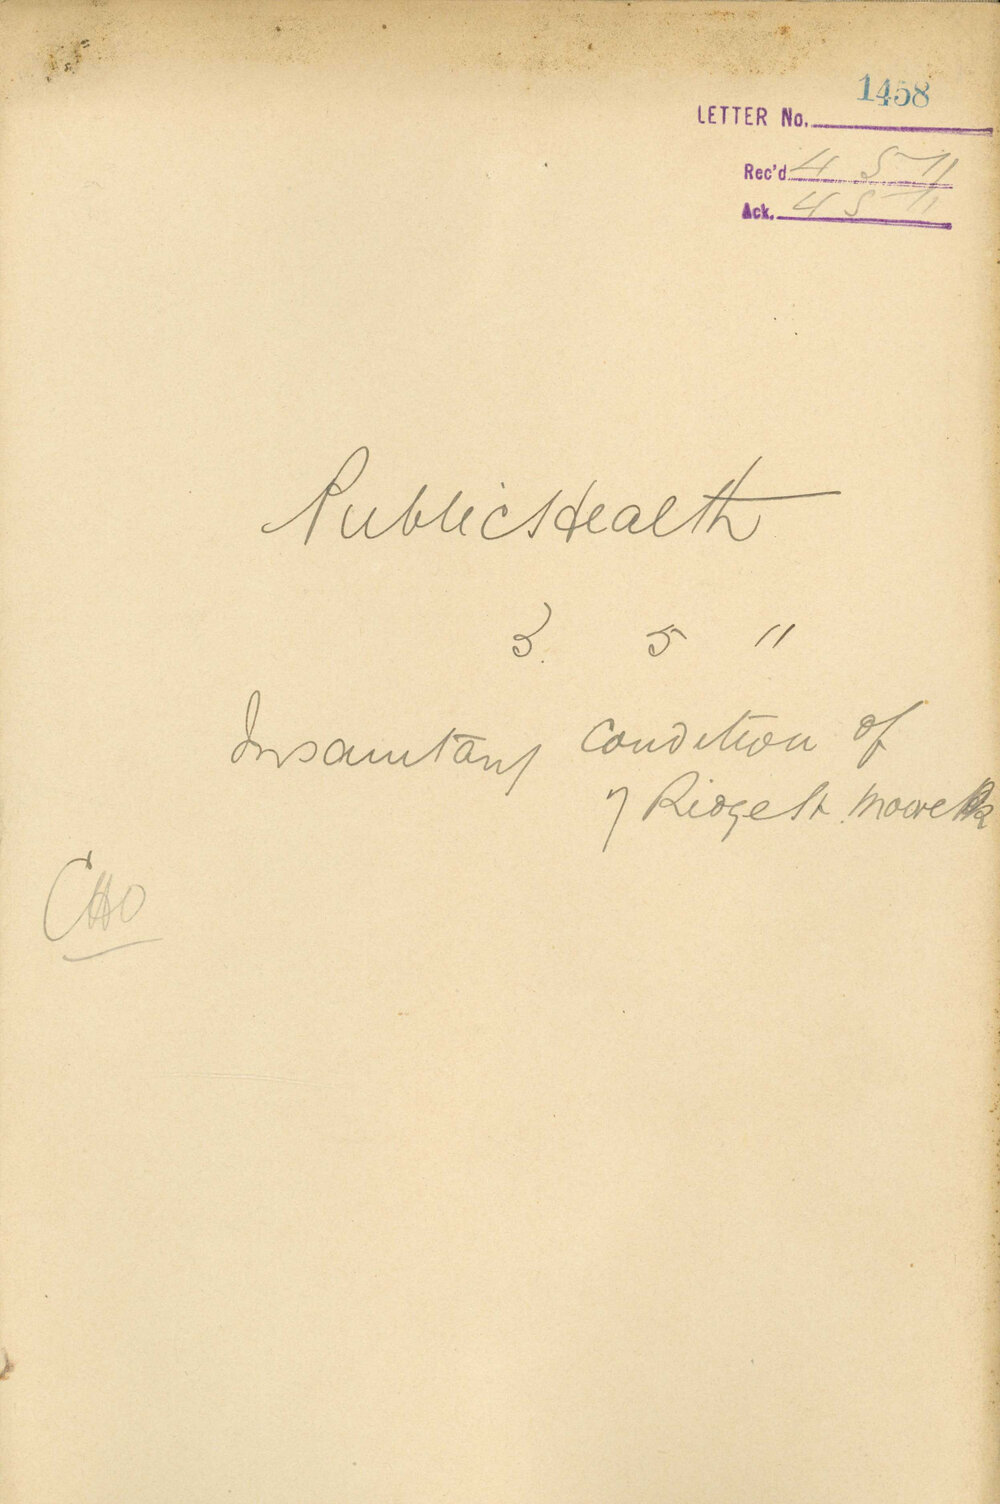 1458
LETTER No.
Rec'd 4 5 11
Ack. 4 5 11
Public Health
3 5 11
Insanitary Condition of
7 Ridge St. Moore Pk
CHO